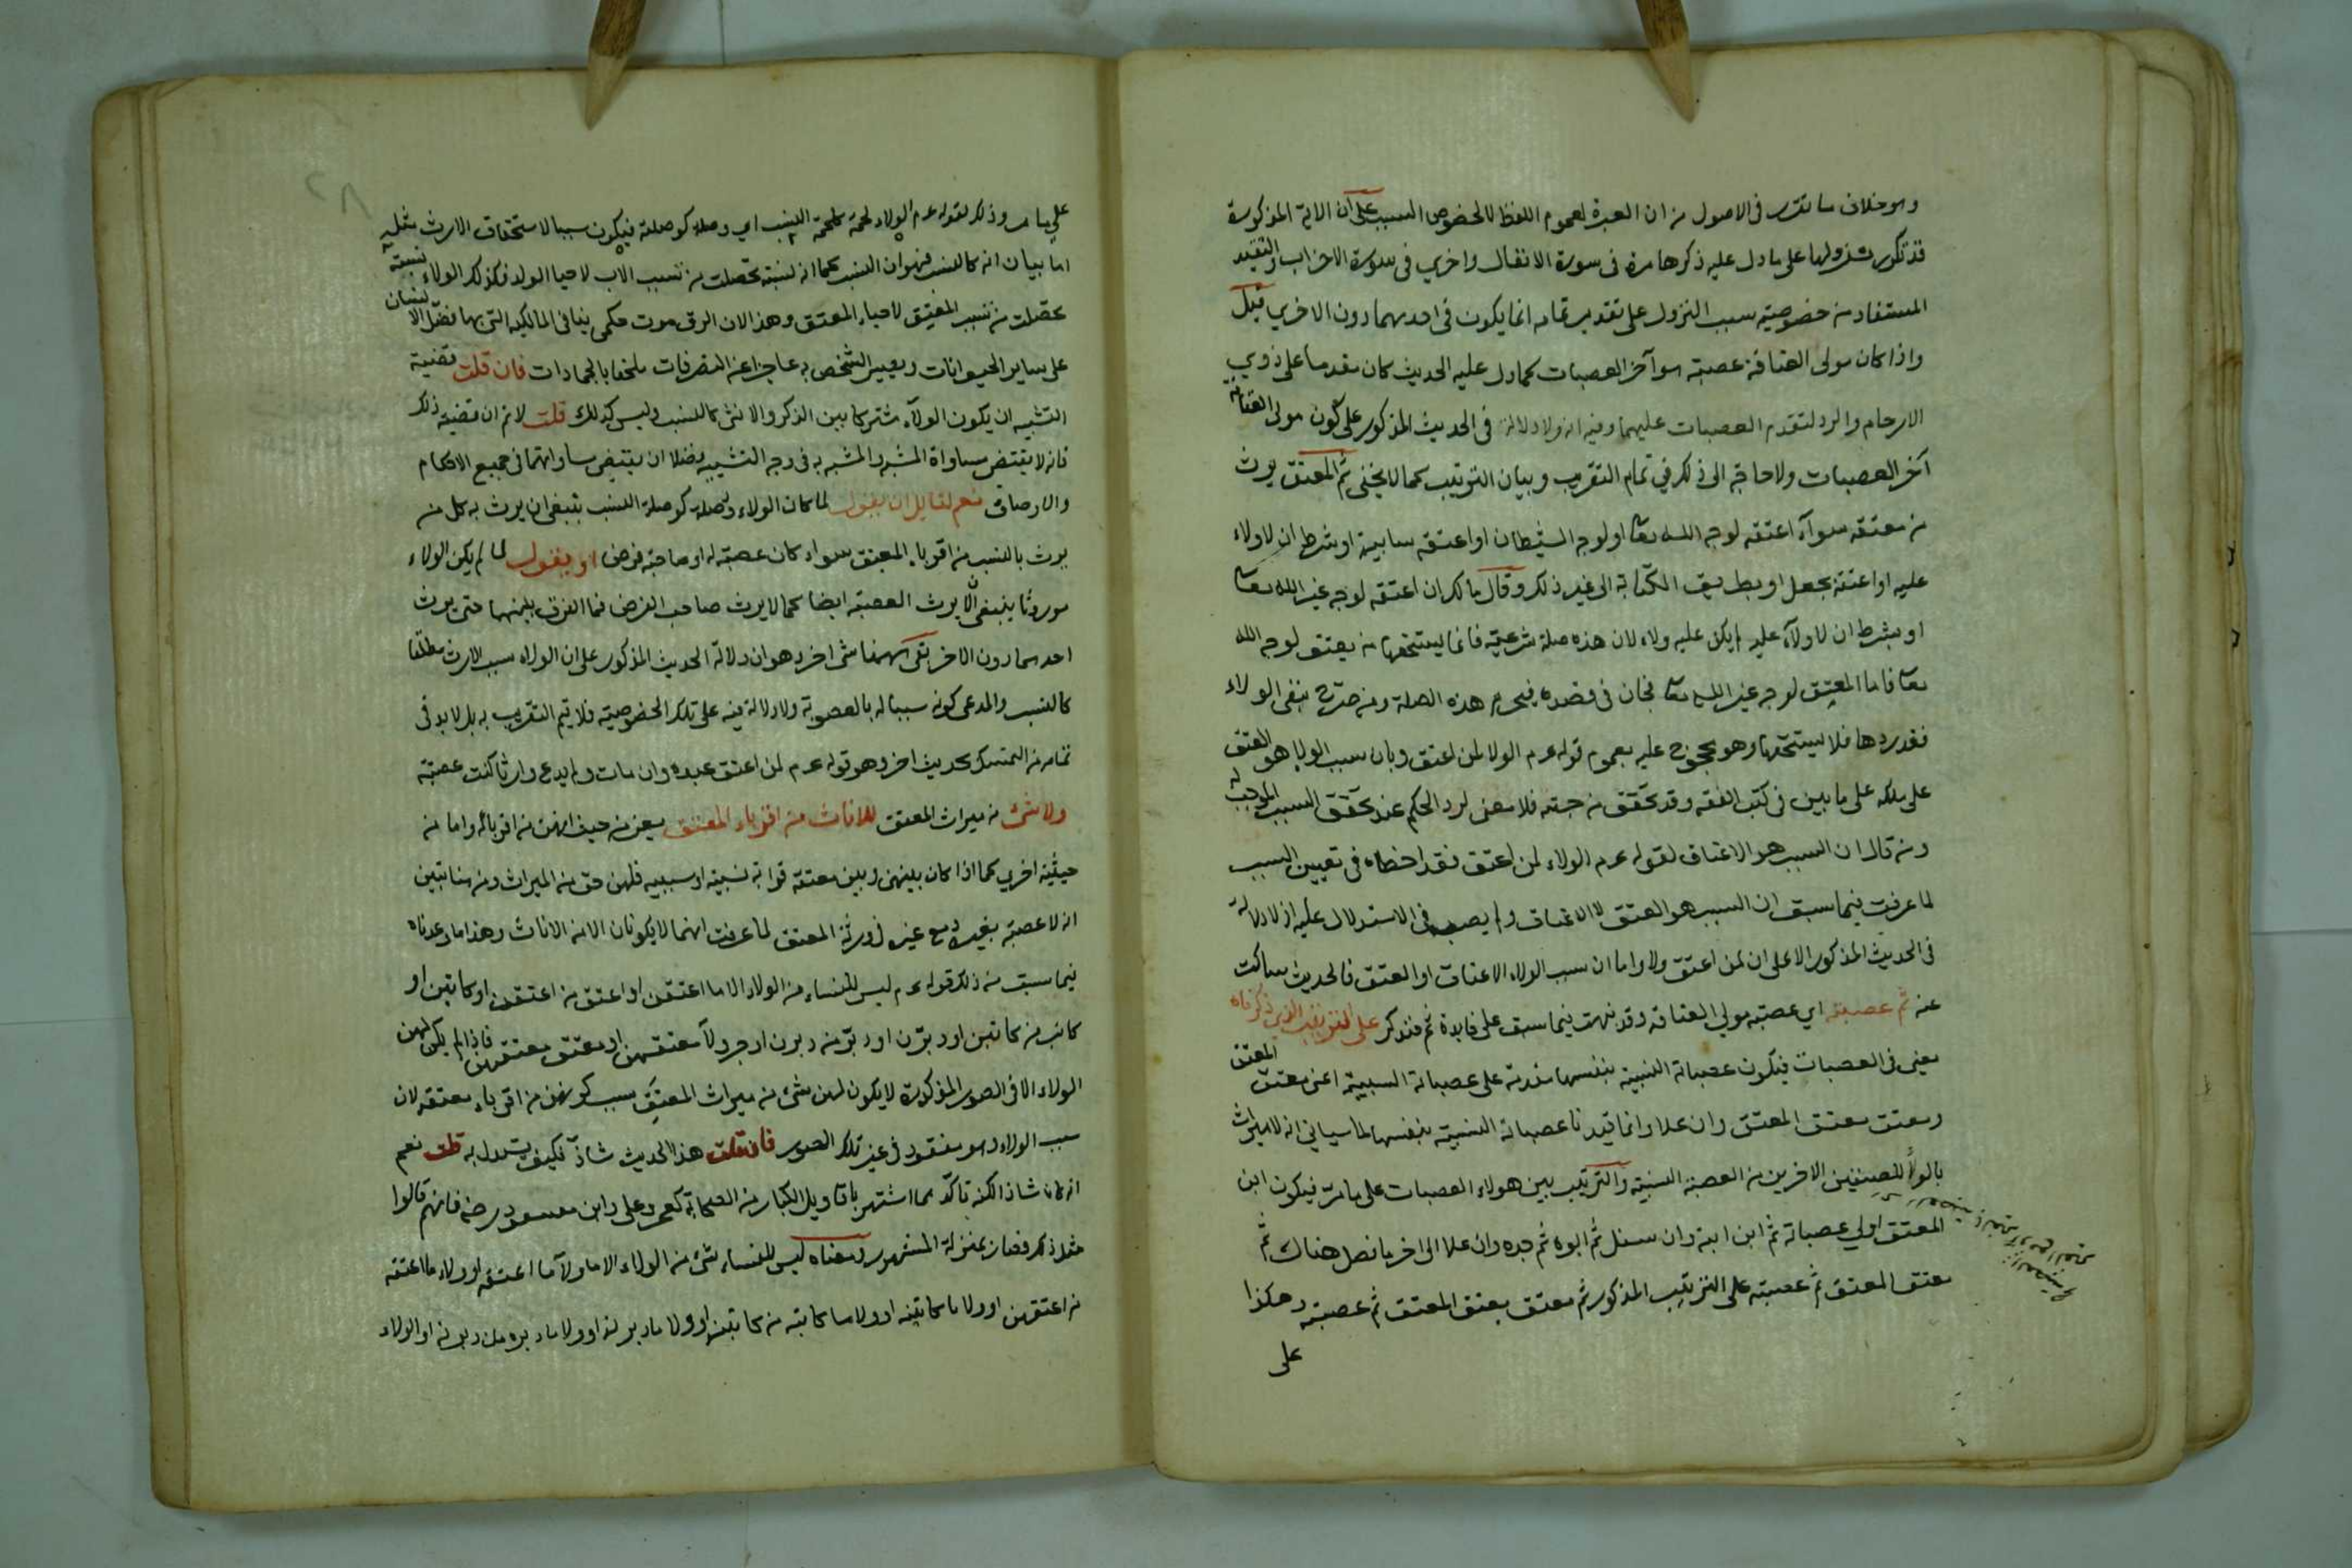 وهو خلاف ما تقرر في الاصول من ان العبرة لعموم اللفظ لا لخصوص السبب على ان الاية المذكورة
قد تكرر نزولها على ما دل عليه ذكرها مرة في سورة الانفال واخري في سورة الاحزاب والتقييد
المستفاد من خصوصية سبب النزول على تقدير تمامه انما يكون في احديهما دون الاخري قيل
واذا كان مولى العتاقة عصبة هو آخر العصبات كما دل عليه الحديث كان مقدما على ذوي
الارحام والرد لتقدم العصبات عليهما وفيه انه لا دلالة في الحديث المذكور على كون مولى العتاقة
آخر العصبات ولا حاجة الى ذلك في تمام التقريب وبيان الترتيب كما لا يخفى ثم المعتق يرث
من معتقه سوآء اعتقه لوجه الله تعا او لوجه الشيطان او اعتقه سايبة او بشرط ان لا ولاء
عليه او اعتقه بجعل او بطريق الكتابة الى غير ذلك وقال مالك ان اعتقه لوجه غير الله تعا
او بشرط ان لا ولآء عليه لم يكن عليه ولاء لان هذه صلة شرعية فانما يستحقها من يعتق لوجه الله
تعا فاما المعتق لوجه غير الله تعا فجان في قصده فيحرم هذه الصلة ومن صرح بنفي الولاء
فقد ردها فلا يستحقها وهو محجوج عليه بعموم قوله عم الولا لمن اعتق وبان سبب الولا هو العتق
على ملكه على ما بين في كتب الفقه وقد تحقق من جهته فلا معنى لرد الحكم عند تحقق السبب الموجب له
ومن قال ان السبب هو الاعتاق لقوله عم الولاء لمن اعتق فقد اخطاء في تعيين السبب
لما عرفت فيما سبق ان السبب هو العتق لا الاعتاق ولم يصب في الاستدلال عليه اذ لا دلالة
في الحديث المذكور الا على ان لمن اعتق ولا واما ان سبب الولاء الاعتاق او العتق فالحديث ساكت
عنه ثم عصبته اي عصبة مولي العتاقة وقد نبهت فيما سبق على فايدة ثم فتذكر على الترتيب الذي ذكرناه
يعني في العصبات فيكون عصباته النسبية بنفسها مقدمة على عصباته السببية اعني معتق المعتق
ومعتق معتق المعتق وان علا وانما قيدنا عصباته النسبية بنفسها لما سياتي انه لا ميراث
بالولأ للصنفين الاخرين من العصبة النسبية والترتيب بين هولاء العصبات على ما مر فيكون ابن
المعتق اولي عصباته ثم ابن ابنه وان سفل ثم ابوه ثم جده وان علا الى اخر ما فصل هناك ثم
معتق المعتق ثم عصبته على الترتيب المذكور ثم معتق معتق المعتق ثم عصبته وهكذا
على
على ما مر وذلك لقوله عم الولاء لحمة كلحمة النسب اي وصلة كوصلته فيكون سببا لاستحقاق الارث مثله
اما بيان انه كالنسب فهو ان النسب كما انه نسبة تحصلت من تسبب الاب لاحيا الولد فكذلك الولاء نسبة
تحصلت من تسبب المعتق لاحياء المعتق وهذا لان الرق موت حكمي ينافي المالكية التي بها فضل الانسان
على ساير الحيوانات ويصير الشخص به عاجزا عن التصرفات ملحقا بالجمادات فان قلت قضية
التشبيه ان يكون الولآء مشتركا بين الذكر والانثى كالنسب وليس كذلك قلت لا نم ان قضيته ذلك
فانه لا يقتضى مساواة المشبه والمشبه به في وجه التشبيه فضلا ان يقتضى مساواتهما في جميع الاحكام
والاوصاف نعم لقايل ان يقول لما كان الولاء وصلة كوصلة النسب ينبغي ان يرث به كل من
يرث بالنسب من اقرباء المعتق سواء كان عصبة له او صاحبة فرض او يقول لما لم يكن الولاء
موروثا ينبغي ان لا يرث العصبة ايضا كما لا يرث صاحب الفرض فما الفرق بينهما حتى يرث
احدهما دون الاخر بقى ههنا شى اخر وهو ان دلالة الحديث المذكور على ان الولاء سبب الارث مطلقا
كالنسب والمدعى كونه سببا له بالعصوبة ولا دلالة فيه على تلك الخصوصية فلا يتم التقريب به بل لا بد في
تمامه من التمسك بحديث اخر وهو قوله عم لمن اعتق عبده وان مات ولم يدع وارثا كنت عصبته
ولا شئ من ميراث المعتق للاناث من اقرباء المعتق يعنى من حيث انهن من اقربائه واما من
حيثية اخري كما اذا كان بينهن وبين معتقه قرابة نسبية او سببيه فلهن حق من الميراث ومن هنا تبين
انه لا عصبة بغيره ومع غيره في ورثة المعتق لما عرفت انهما لا يكونان الا من الاناث وهذا ما وعدناه
فيما سبق من ذلك قوله عم ليس للنساء من الولاء الا ما اعتقن او اعتق من اعتقن او كاتبن او
كاتب من كاتبن او دبرن او دبر من دبرن او جر ولآ معتقهن او معتق معتقهن فاذا لم يكن لهن
الولاء الا في الصور المذكورة لا يكون لهن شئ من ميراث المعتق بسبب كونهن من اقرباء معتقه لان
سبب الولاء وهو مفقود في غير تلك الصور فان قلت هذا الحديث شاذ فكيف يستدل به قلت نعم
انه كان شاذا لكنه تاكد بما اشتهر باقاويل الكبار من الصحابة كعمر وعلي وابن مسعود رضه فانهم قالوا
مثل ذلك فصار بمنزلة المشهور ومعناه ليس للنساء شئ من الولاء الا ما ولآ ما اعتقنه او ولاء ما اعتقه
من اعتقهن او ولا ما كاتبنه او ولا ما كاتبه من كاتبنه او ولا ما دبرنه او ولا ما دبره من دبرنه او الولاء